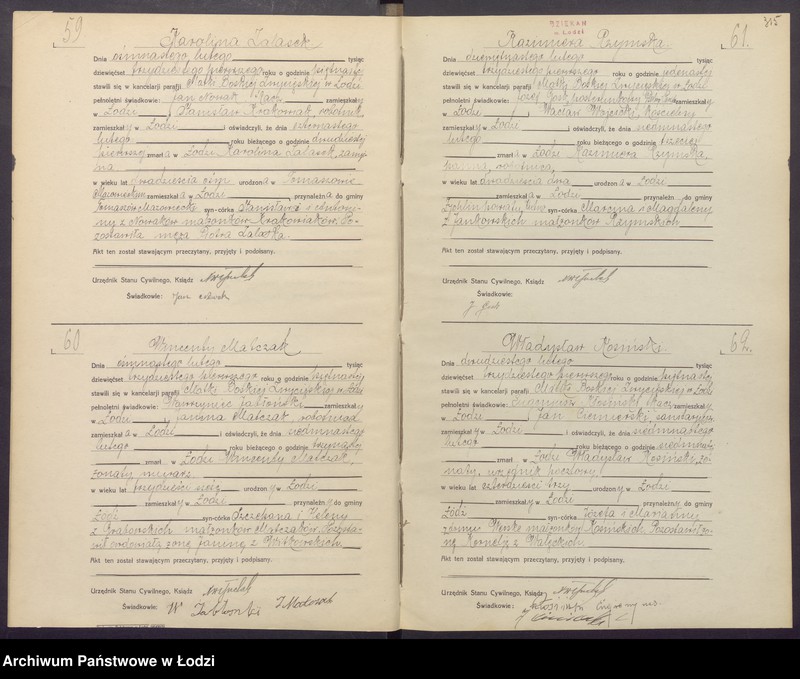 59
Karolina Zalasek
Dnia ośmnastego lutego tysiąc
dziewięćset trzydziestego pierwszego roku o godzinie piętnastej
stawili się w kancelarji parafji Matki Boskiej Zwycięskiej w Łodzi
pełnoletni świadkowie: Jan Nowak, zamieszkały
w Łodzi, Stanisław Krakowiak, robotnik,
zamieszkały w Łodzi i oświadczyli, że dnia
lutego roku bieżącego o godzinie dwudziestej
pierwszej zmarła w Łodzi Karolina Zalasek, zamęż-
na
w wieku lat dwadzieścia ośm urodzona w Tomaszowie
Mazowieckim zamieszkała w Łodzi, przynależna do gminy
Tomaszów Mazowiecki syn-córka Stanisława i
z Nowaków małżonków Krakowiaków. Po-
zostawiła męża Piotra Zalaska.
Akt ten został stawającym przeczytany, przyjęty i podpisany.
Urzędnik Stanu Cywilnego, Ksiądz
Świadkowie: Jan
60
Wincenty Matczak
Dnia ośmnastego lutego tysiąc
dziewięćset trzydziestego pierwszego roku o godzinie piętnastej
stawili się w kancelarji parafji Matki Boskiej Zwycięskiej w Łodzi
pełnoletni świadkowie: Wawrzyniec Jabłoński zamieszkały
w Łodzi Janina Matczak robotnica
zamieszkała w Łodzi i oświadczyli, że dnia siedmnastego
lutego roku bieżącego o godzinie
zmarł w Łodzi Wincenty Matczak,
żonaty murarz
w wieku lat trzydzieści sześć urodzony w Łodzi
zamieszkały w Łodzi przynależny do gminy
Łódź syn-córka Szczepana i Heleny
z Grabowskich małżonków Matczaków. Pozosta-
wił owdowiałą żonę Janinę z Witkowskich.
Akt ten został stawającym przeczytany, przyjęty i podpisany.
Urzędnik Stanu Cywilnego, Ksiądz
Świadkowie: W Jabłoński J Matczak
DZIEKAN
w Łodzi
315
61.
Kazimiera Rzymska
Dnia dziewiętnastego lutego tysiąc
dziewięćset trzydziestego pierwszego roku o godzinie jedenastej
stawili się w kancelarji parafji Matki Boskiej Zwycięskiej w Łodzi
pełnoletni świadkowie: Józef zamieszkały
w Łodzi Wacław Wojciecki, kościelny
zamieszkały w Łodzi i oświadczyli, że dnia siedmnastego
lutego roku bieżącego o godzinie trzeciej
zmarła w Łodzi Kazimiera Rzymska,
panna, robotnica,
w wieku lat dwadzieścia dwa urodzona w Łodzi
zamieszkała w Łodzi przynależna do gminy
syn-córka Marcina i Magdaleny
z Jankowskich małżonków Rzymskich
Akt ten został stawającym przeczytany, przyjęty i podpisany.
Urzędnik Stanu Cywilnego, Ksiądz
Świadkowie:
62.
Władysław Kosiński
Dnia dwudziestego lutego tysiąc
dziewięćset trzydziestego pierwszego roku o godzinie piętnastej
stawili się w kancelarji parafji Matki Boskiej Zwycięskiej w Łodzi
pełnoletni świadkowie: Eugenjusz zamieszkały
w Łodzi Jan sanitarjusz
zamieszkały w Łodzi i oświadczyli, że dnia siedmnastego
lutego roku bieżącego o godzinie siedmnastej
zmarł w Łodzi Władysław Kosiński, żo-
naty, urzędnik pocztowy,
w wieku lat czterdzieści trzy urodzony w Łodzi
zamieszkały w Łodzi przynależny do gminy
Łódź syn-córka Józefa i Marianny
małżonków Kosińskich. Pozostawił żo-
nę Kornelę z Wałęckich.
Akt ten został stawającym przeczytany, przyjęty i podpisany.
Urzędnik Stanu Cywilnego, Ksiądz
Świadkowie:
Archiwum Państwowe w Łodzi